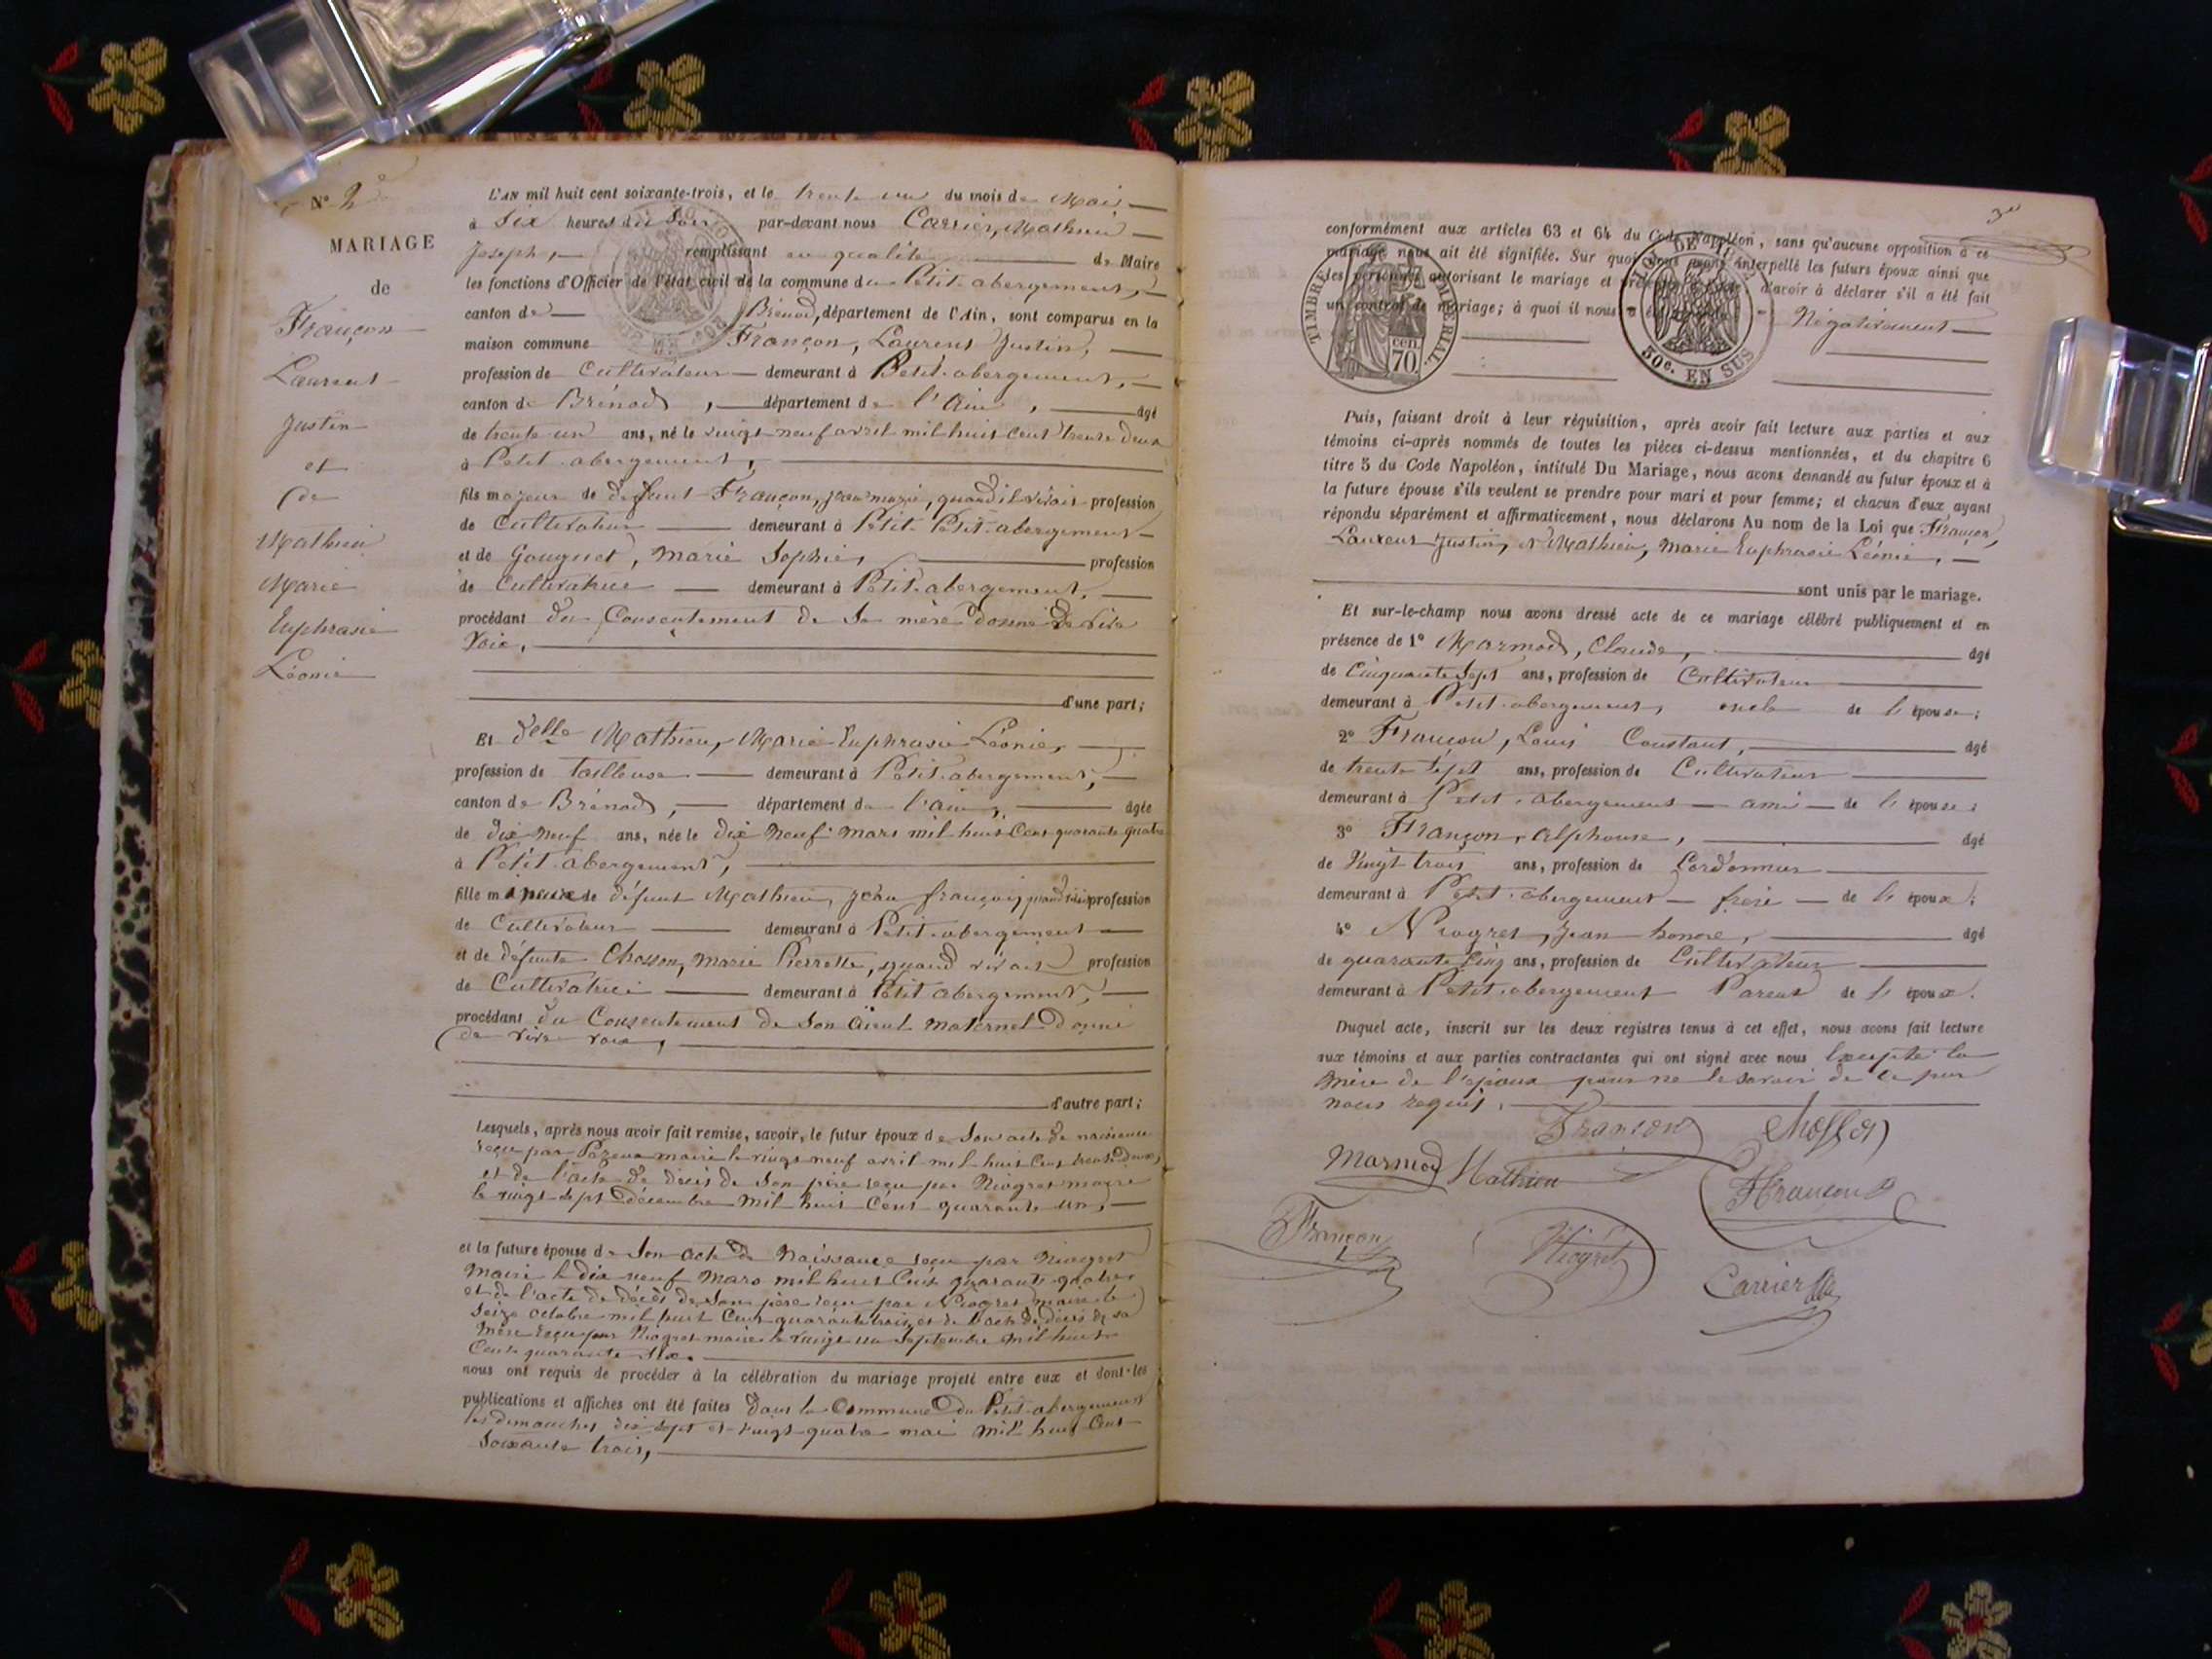 N° 2e
MARIAGE
de
Françon
Laurent
Justin
et
de
Mathieu
Marie
Euphrasie
Léonie
L'AN mil huit cent soixante-trois, et le trente un du mois de Mai
à Six heures du Soir par-devant nous Carrier, Mathieu
Joseph, remplissant en qualité de Maire
les fonctions d'Officier de l'état civil de la commune du Petit-abergement,
canton de Brénod, département de l'Ain, sont comparus en la
maison commune Françon, Laurent Justin,
profession de Cultivateur demeurant à Petit-abergement,
canton de Brénod, département de l'Ain, âgé
de trente un ans, né le vingt-neuf avril mil huit cent trente deux
à Petit-abergement,
fils majeur de défunt Françon, jean marie, quand il vivait profession
de Cultivateur demeurant à Petit Petit-abergement
et de Gouguet, Marie Sophie, profession
de Cultivatrice demeurant à Petit-abergement,
procédant du Consentement de Sa mère donné de vive
Voie,
d'une part;
Et delle Mathieu, Marie Euphrasie Léonie,
profession de tailleuse demeurant à Petit-abergement,
canton de Brénod, département de l'ain, âgée
de dix neuf ans, née le dix neuf mars mil huit Cent quarante quatre
à Petit-abergement,
fille mineure de défunt Mathieu, Jean françois, quand vivait profession
de Cultivateur demeurant à Petit-abergement
et de défunte Chosson, Marie Pierrette, quand vivait profession
de Cultivatrice demeurant à Petit abergement,
procédant du Consentement de Son aïeul maternel donné
de vive voix,
d'autre part;
Lesquels, après nous avoir fait remise, savoir, le futur époux de Son acte de naissance
reçu par maire le vingt neuf avril mil huit Cent trente deux,
et de l'acte de décès de Son père reçu par Niogret maire
le vingt-sept décembre mil huit Cent quarante un,
et la future épouse de Son acte de Naissance reçu par Niogret
Maire le dix neuf Mars mil huit Cent quarante quatre
et de l'acte de décès de Son père reçu par Niogret maire le
Seize octobre mil huit Cent quarante trois et de l'acte de décès de sa
Mère reçu par Niogret maire le vingt un Septembre mil huit
Cent quarante Six.
nous ont requis de procéder à la célébration du mariage projeté entre eux et dont les
publications et affiches ont été faites dans la Commune du Petit-abergement
les dimanches dix sept et vingt quatre mai mil huit Cent
Soixante trois,
3e
conformément aux articles 63 et 64 du Code Napoléon, sans qu'aucune opposition à ce
mariage nous ait été signifiée. Sur quoi nous avons interpellé les futurs époux ainsi que
les personnes autorisant le mariage et d'avoir à déclarer s'il a été fait
un contrat de mariage; à quoi il nous a été Négativement
TIMBRE IMPÉRIAL
cen. 70.
50c. EN SUS
Puis, faisant droit à leur réquisition, après avoir fait lecture aux parties et aux
témoins ci-après nommés de toutes les pièces ci-dessus mentionnées, et du chapitre 6
titre 5 du Code Napoléon, intitulé Du Mariage, nous avons demandé au futur époux et à
la future épouse s'ils veulent se prendre pour mari et pour femme; et chacun d'eux ayant
répondu séparément et affirmativement, nous déclarons Au nom de la Loi que Françon,
Laurent Justin, et Mathieu, Marie Euphrasie Léonie,
sont unis par le mariage.
Et sur-le-champ nous avons dressé acte de ce mariage célébré publiquement et en
présence de 1° Marmod, Claude, âgé
de Cinquante Sept ans, profession de Cultivateur
demeurant à Petit-abergement, oncle de l'épouse;
2° Françon, Louis Constant, âgé
de trente sept ans, profession de Cultivateur
demeurant à Petit-abergement ami de l'épouse;
3° Françon, alphonse, âgé
de Vingt trois ans, profession de Cordonnier
demeurant à Petit-abergement frère de l'époux;
4° Niogret, Jean honoré, âgé
de quarante Cinq ans, profession de Cultivateur
demeurant à Petit-abergement Parent de l'époux.
Duquel acte, inscrit sur les deux registres tenus à cet effet, nous avons fait lecture
aux témoins et aux parties contractantes qui ont signé avec nous Excepté la
Mère de l'époux pour ne le savoir de ce par
nous requis.
Françon Chosson
Marmod Mathieu
Françon
Françon Niogret
Carrier